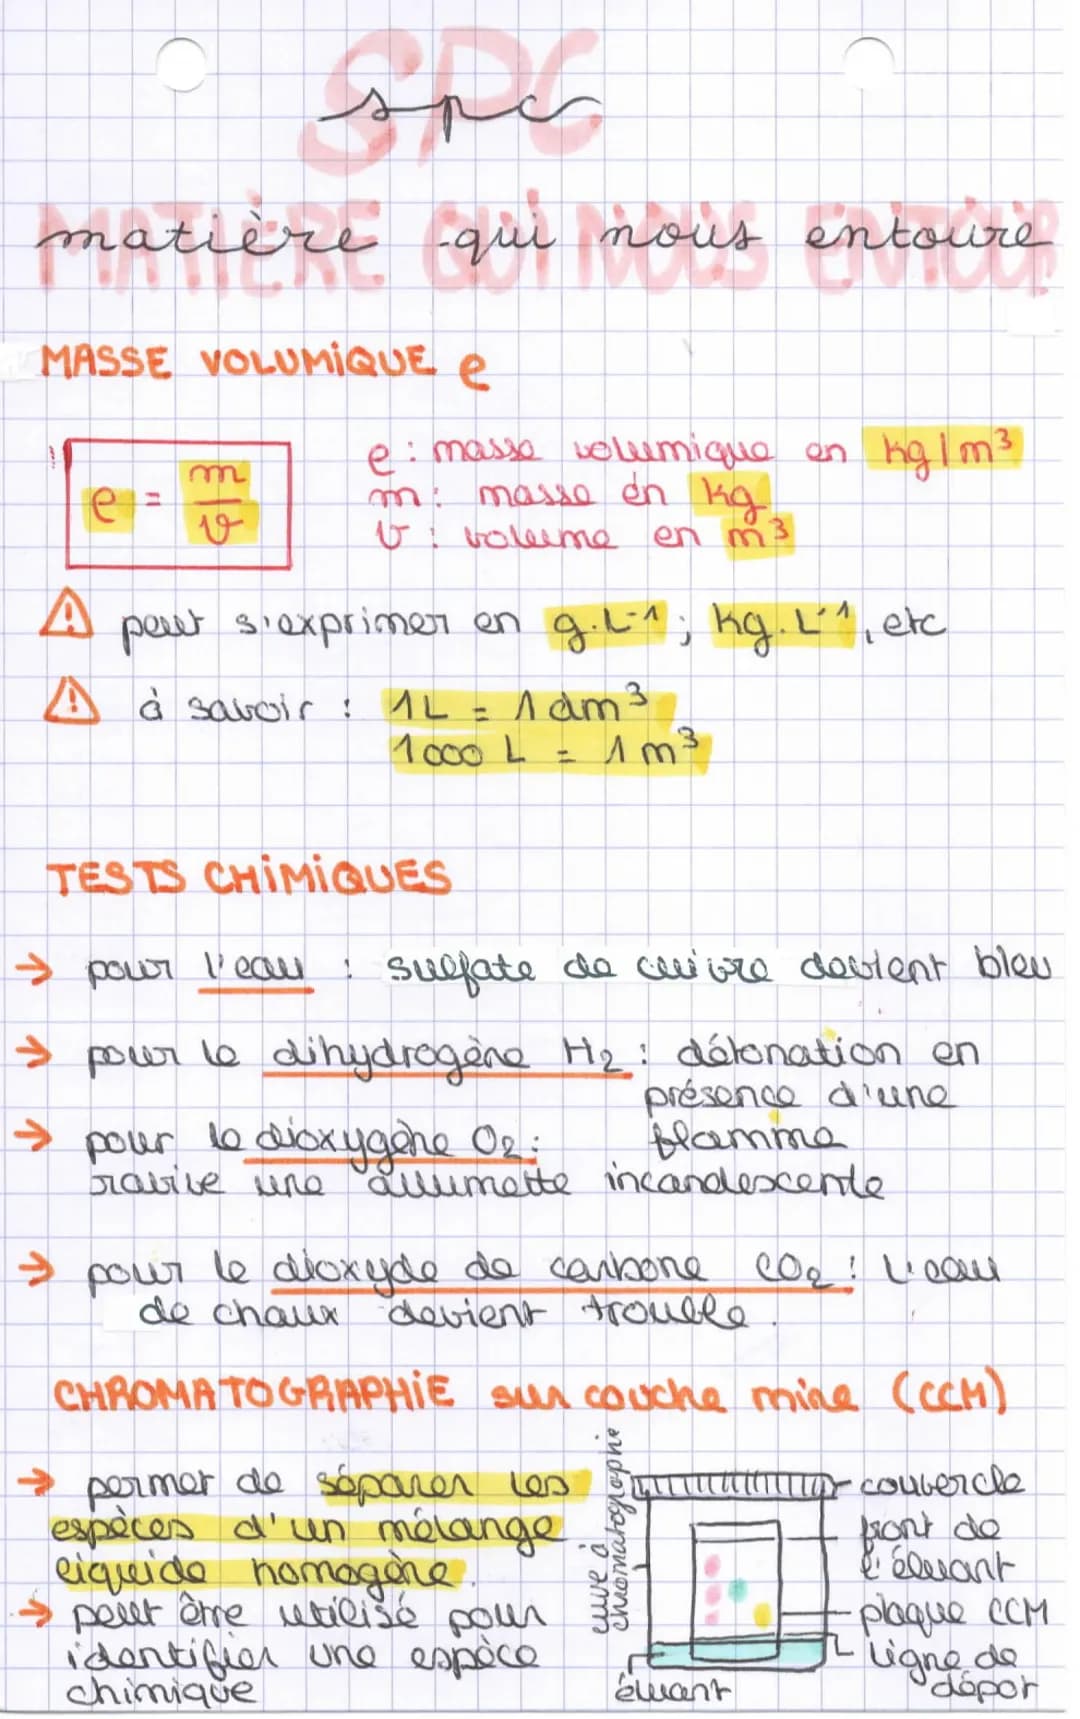 SPC
spc
MATIÈRE QUI NOUS ENTOUR
matière qui nous entoure
MASSE VOLUMIQUE ρ
ρ = m/v
ρ : masse volumique en kg/m³
m : masse en kg
v : volume en m³
⚠ peut s'exprimer en g.L⁻¹ ; kg.L⁻¹, etc
⚠ à savoir : 1L = 1 dm³
1000 L = 1 m³
TESTS CHIMIQUES
→ pour l'eau : sulfate de cuivre devient bleu
→ pour le dihydrogène H₂ : détonation en
présence d'une
flamme
→ pour le dioxygène O₂ :
ravive une allumette incandescente
→ pour le dioxyde de carbone CO₂ : L'eau
de chaux devient trouble.
CHROMATOGRAPHIE sur couche mine (CCM)
→ permet de séparer les
espèces d'un mélange
liquide homogène.
→ peut être utilisé pour
identifier une espèce
chimique
cuve à
chromatographie
couvercle
front de
l'éluant
plaque CCM
ligne de
dépot
éluant